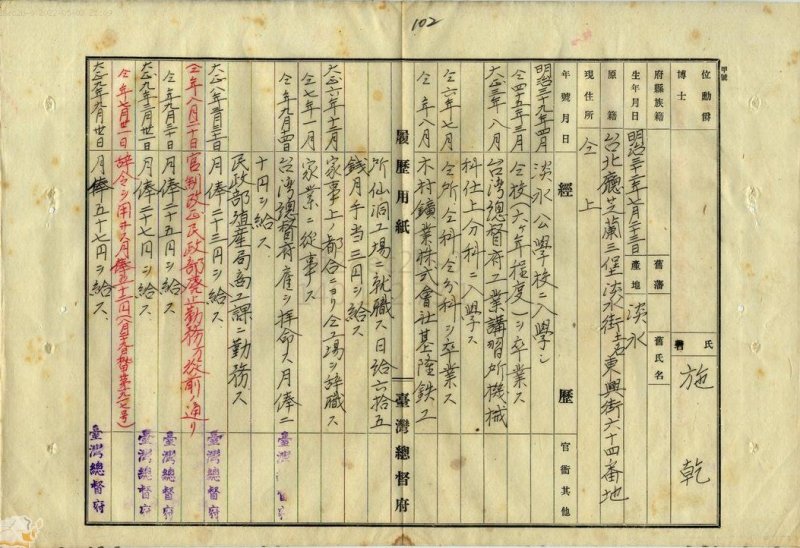 102
甲號
位勳爵
博士
氏名 施 乾
府縣族籍
舊藩
舊氏名
生年月日 明治三十二年七月二十三日
產地 淡水
原籍 台北廳芝蘭三堡淡水街土名東興街六十四番地
現住所 仝上
年號月日 經歷 官衙其他
明治三十九年四月 淡水公學校ニ入學シ
仝四十五年三月 仝校(六ケ年程度)ヲ卒業ス
大正三年八月 台湾總督府工業講習所機械
科仕上分科ニ入學ス
仝六年七月 仝所仝科仝分科ヲ卒業ス
仝年八月 木村鑛業株式會社基隆鉄工
履歷用紙 臺灣總督府
所仙洞工場ニ就職ス日給六拾五
錢月手当三円ヲ給ス
大正六年十二月 家事上ノ都合ニヨリ仝工場ヲ辞職ス
仝七年一月 家業ニ從事ス
仝年九月 台湾總督府雇ヲ拜命ス月俸二 臺灣 府
十円ヲ給ス
民政部殖産局商工課ニ勤務ス
大正八年三月 月俸二十三円ヲ給ス 臺灣總督府
仝年八月二十日 官制改正民政部廢止勤務方從前ノ通リ
仝年九月 月俸二十五円ヲ給ス 臺灣總督府
大正九年三月 月俸二十七円ヲ給ス 臺灣總督府
仝年七月 辞令ヲ用ヰス月俸五十三円
大正九年九月 月俸五十七円ヲ給ス 臺灣總督府